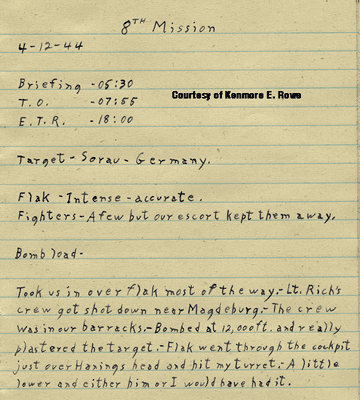 8TH Mission
4-12-44
Briefing - 05:30
T.O. - 07:55
Courtesy of Kenmore E. Rowe
E.T.R. - 18:00
Target - Sorau - Germany.
Flak - Intense - accurate.
Fighters - A few but our escort kept them away.
Bomb load -
Took us in over flak most of the way. - Lt. Rich's
crew got shot down near Magdeburg. - The crew
was in our barracks. - Bombed at 12,000 ft. and really
plastered the target. - Flak went through the cockpit
just over Hanings head and hit my turret. - A little
lower and either him or I would have had it.